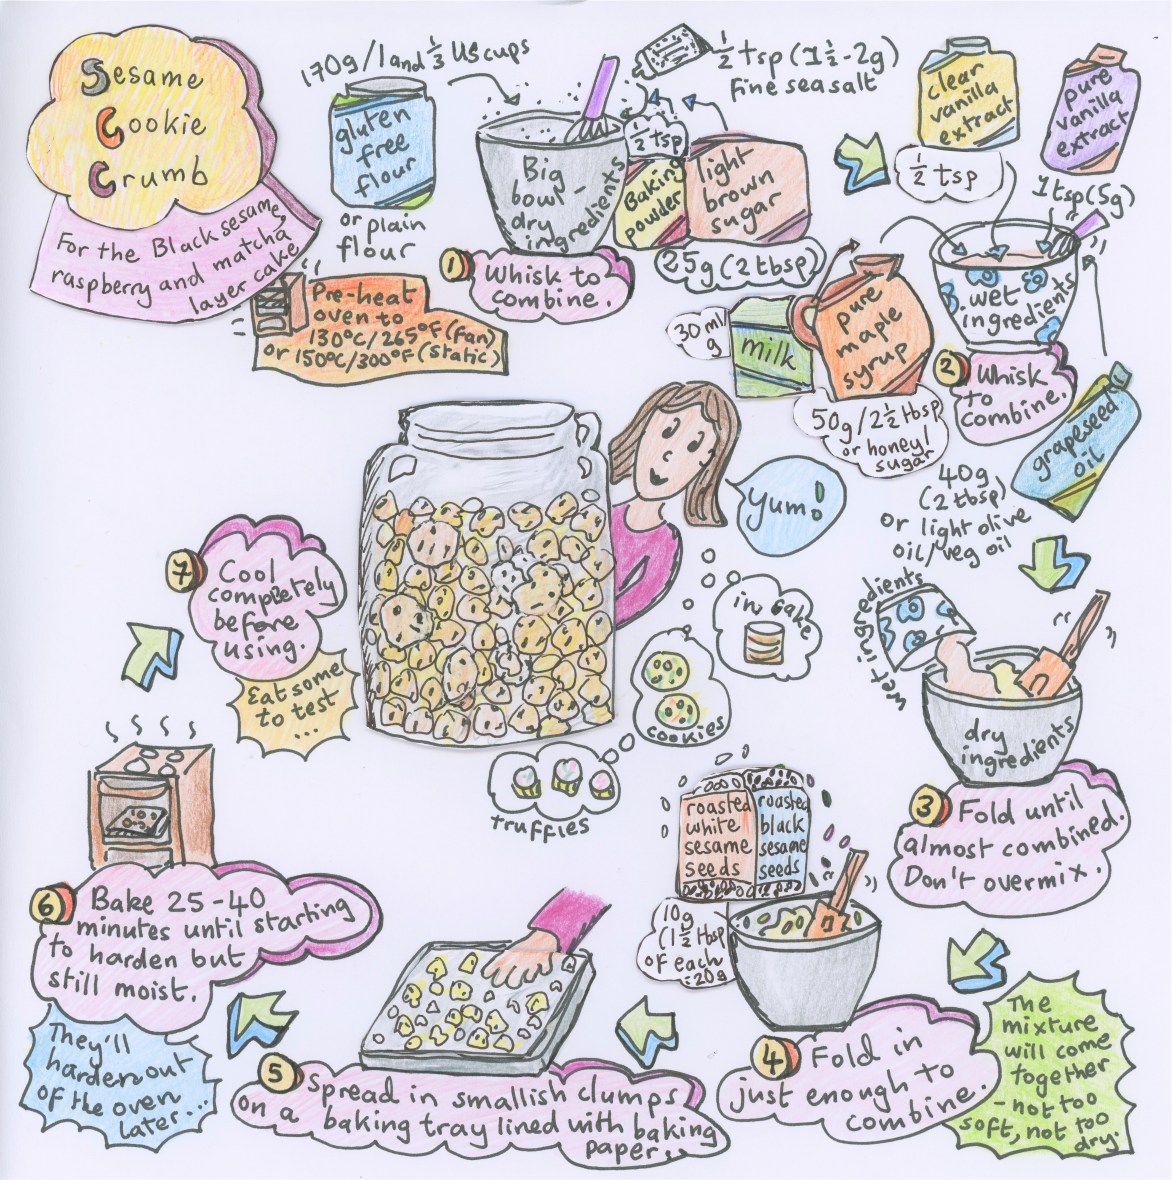 Sesame
Cookie
Crumb
For the Black sesame,
raspberry and matcha
layer cake
170g/1 and 1/3 US cups
gluten
free
flour
or plain
flour
Pre-heat
oven to
130°C/265°F (fan)
or 150°C/300°F (static)
Big
bowl -
dry
ingredients
1
Whisk to
combine.
1/2 tsp (1 1/2-2g)
fine sea salt
1/2 tsp
Baking
powder
light
brown
sugar
25g (2 tbsp)
clear
vanilla
extract
1/2 tsp
pure
vanilla
extract
1 tsp (5g)
wet
ingredients
30ml/
g
milk
pure
maple
syrup
50g/2 1/2 tbsp
or honey/
sugar
2
Whisk
to
combine.
grapeseed
oil
40g
(2 tbsp)
or light olive
oil/veg oil
Yum!
in cake
cookies
truffles
wet ingredients
dry
ingredients
3
Fold until
almost combined.
Don't overmix.
roasted
white
sesame
seeds
roasted
black
sesame
seeds
10g
(1 1/2 tbsp
of each
=20g
4
Fold in
just enough to
combine.
The
mixture
will come
together
- not too
soft, not too
dry.
5
Spread in smallish clumps
on a baking tray lined with baking
paper.
6
Bake 25-40
minutes until starting
to harden but
still moist.
They'll
harden out
of the oven
later...
7
Cool
completely
before
using.
Eat some
to test
...